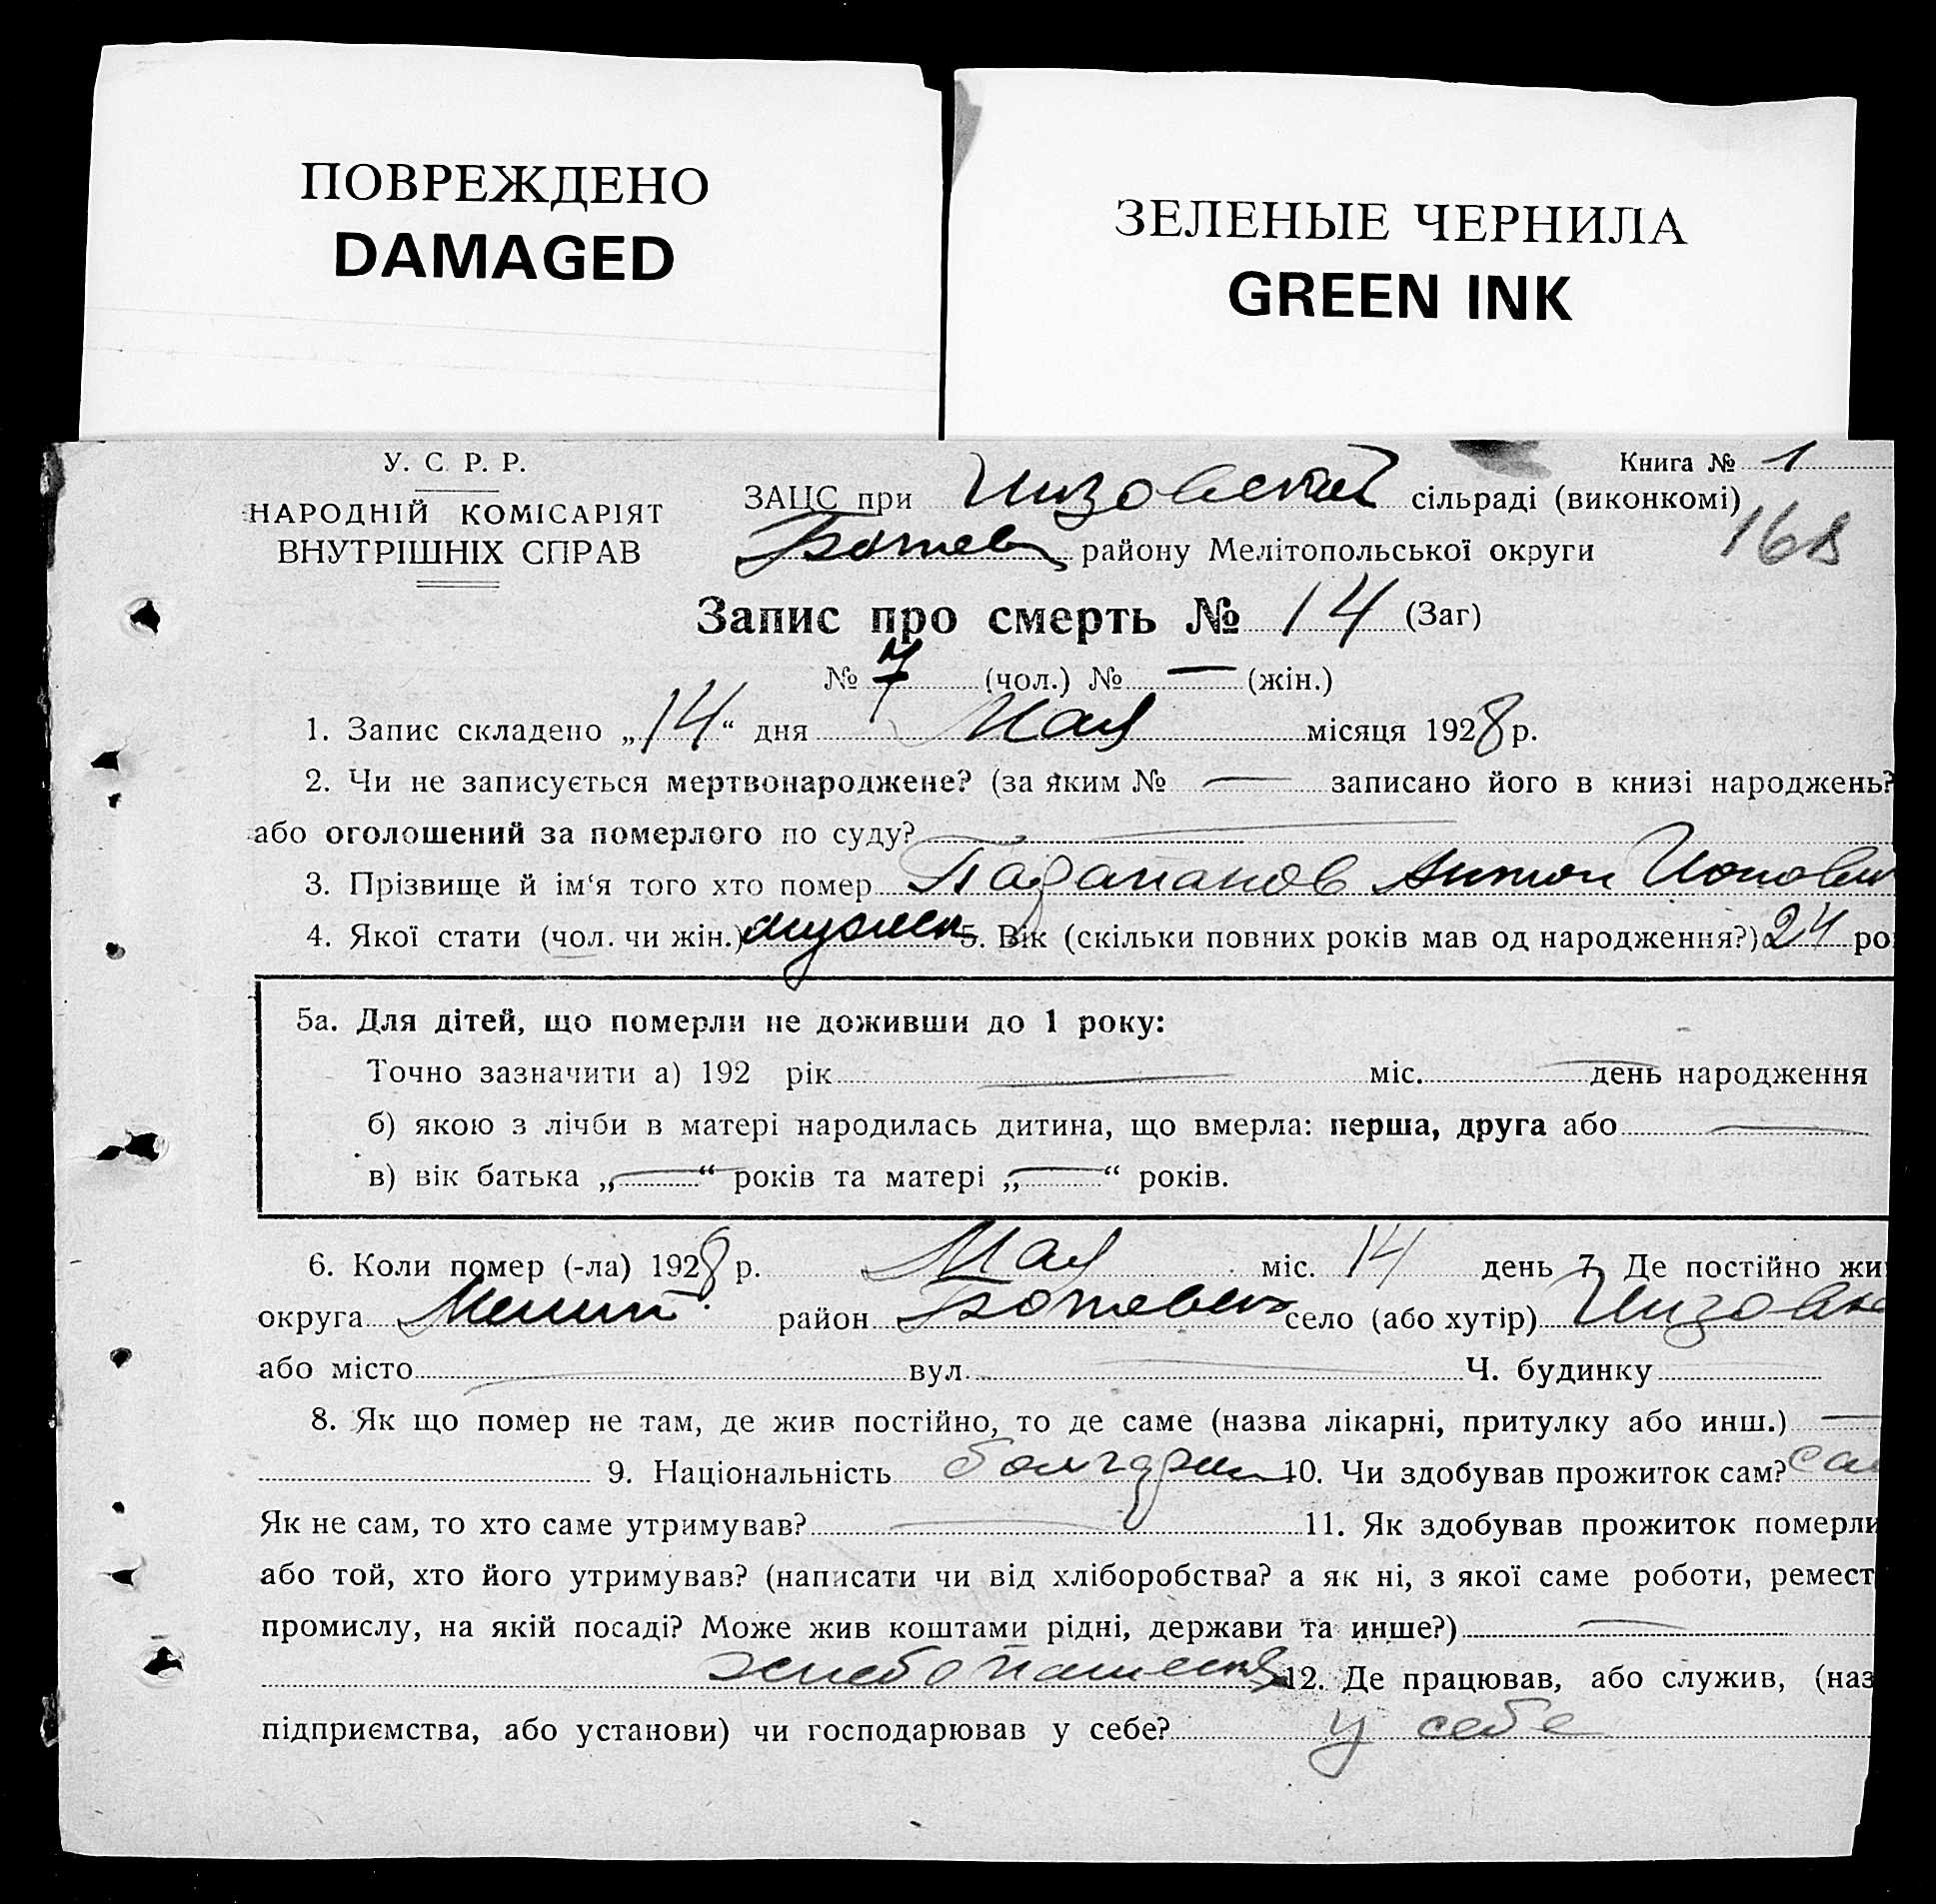 ПОВРЕЖДЕНО
DAMAGED
ЗЕЛЕНЫЕ ЧЕРНИЛА
GREEN INK
У. С. Р. Р.
НАРОДНІЙ КОМІСАРІЯТ
ВНУТРІШНІХ СПРАВ
Книга № 1
ЗАЦС при сільраді (виконкомі)
168
Ботев району Мелітопольської округи
Запис про смерть № 14 (Заг)
№ 7 (чол.) № — (жін.)
1. Запис складено „14“ дня Мая місяця 1928 р.
2. Чи не записується мертвонароджене? (за яким № — записано його в книзі народжень?
або оголошений за померлого по суду?
3. Прізвище й ім‘я того хто помер Антон
4. Якої стати (чол. чи жін.) 5. Вік (скільки повних років мав од народження?) 24 ро
5а. Для дітей, що померли не доживши до 1 року:
Точно зазначити а) 192 рік — міс. — день народження
б) якою з лічби в матері народилась дитина, що вмерла: перша, друга або —
в) вік батька „—“ років та матері „—“ років.
6. Коли помер (-ла) 1928 р. Мая міс. 14 день 7. Де постійно жи
округа Мелит. район село (або хутір)
або місто — вул. — Ч. будинку
8. Як що помер не там, де жив постійно, то де саме (назва лікарні, притулку або инш.) —
9. Національність болгарин 10. Чи здобував прожиток сам? сам
Як не сам, то хто саме утримував? — 11. Як здобував прожиток померли
або той, хто його утримував? (написати чи від хліборобства? а як ні, з якої саме роботи, ремест
промислу, на якій посаді? Може жив коштами рідні, держави та инше?) —
12. Де працював, або служив, (наз
підприємства, або установи) чи господарював у себе? у себе